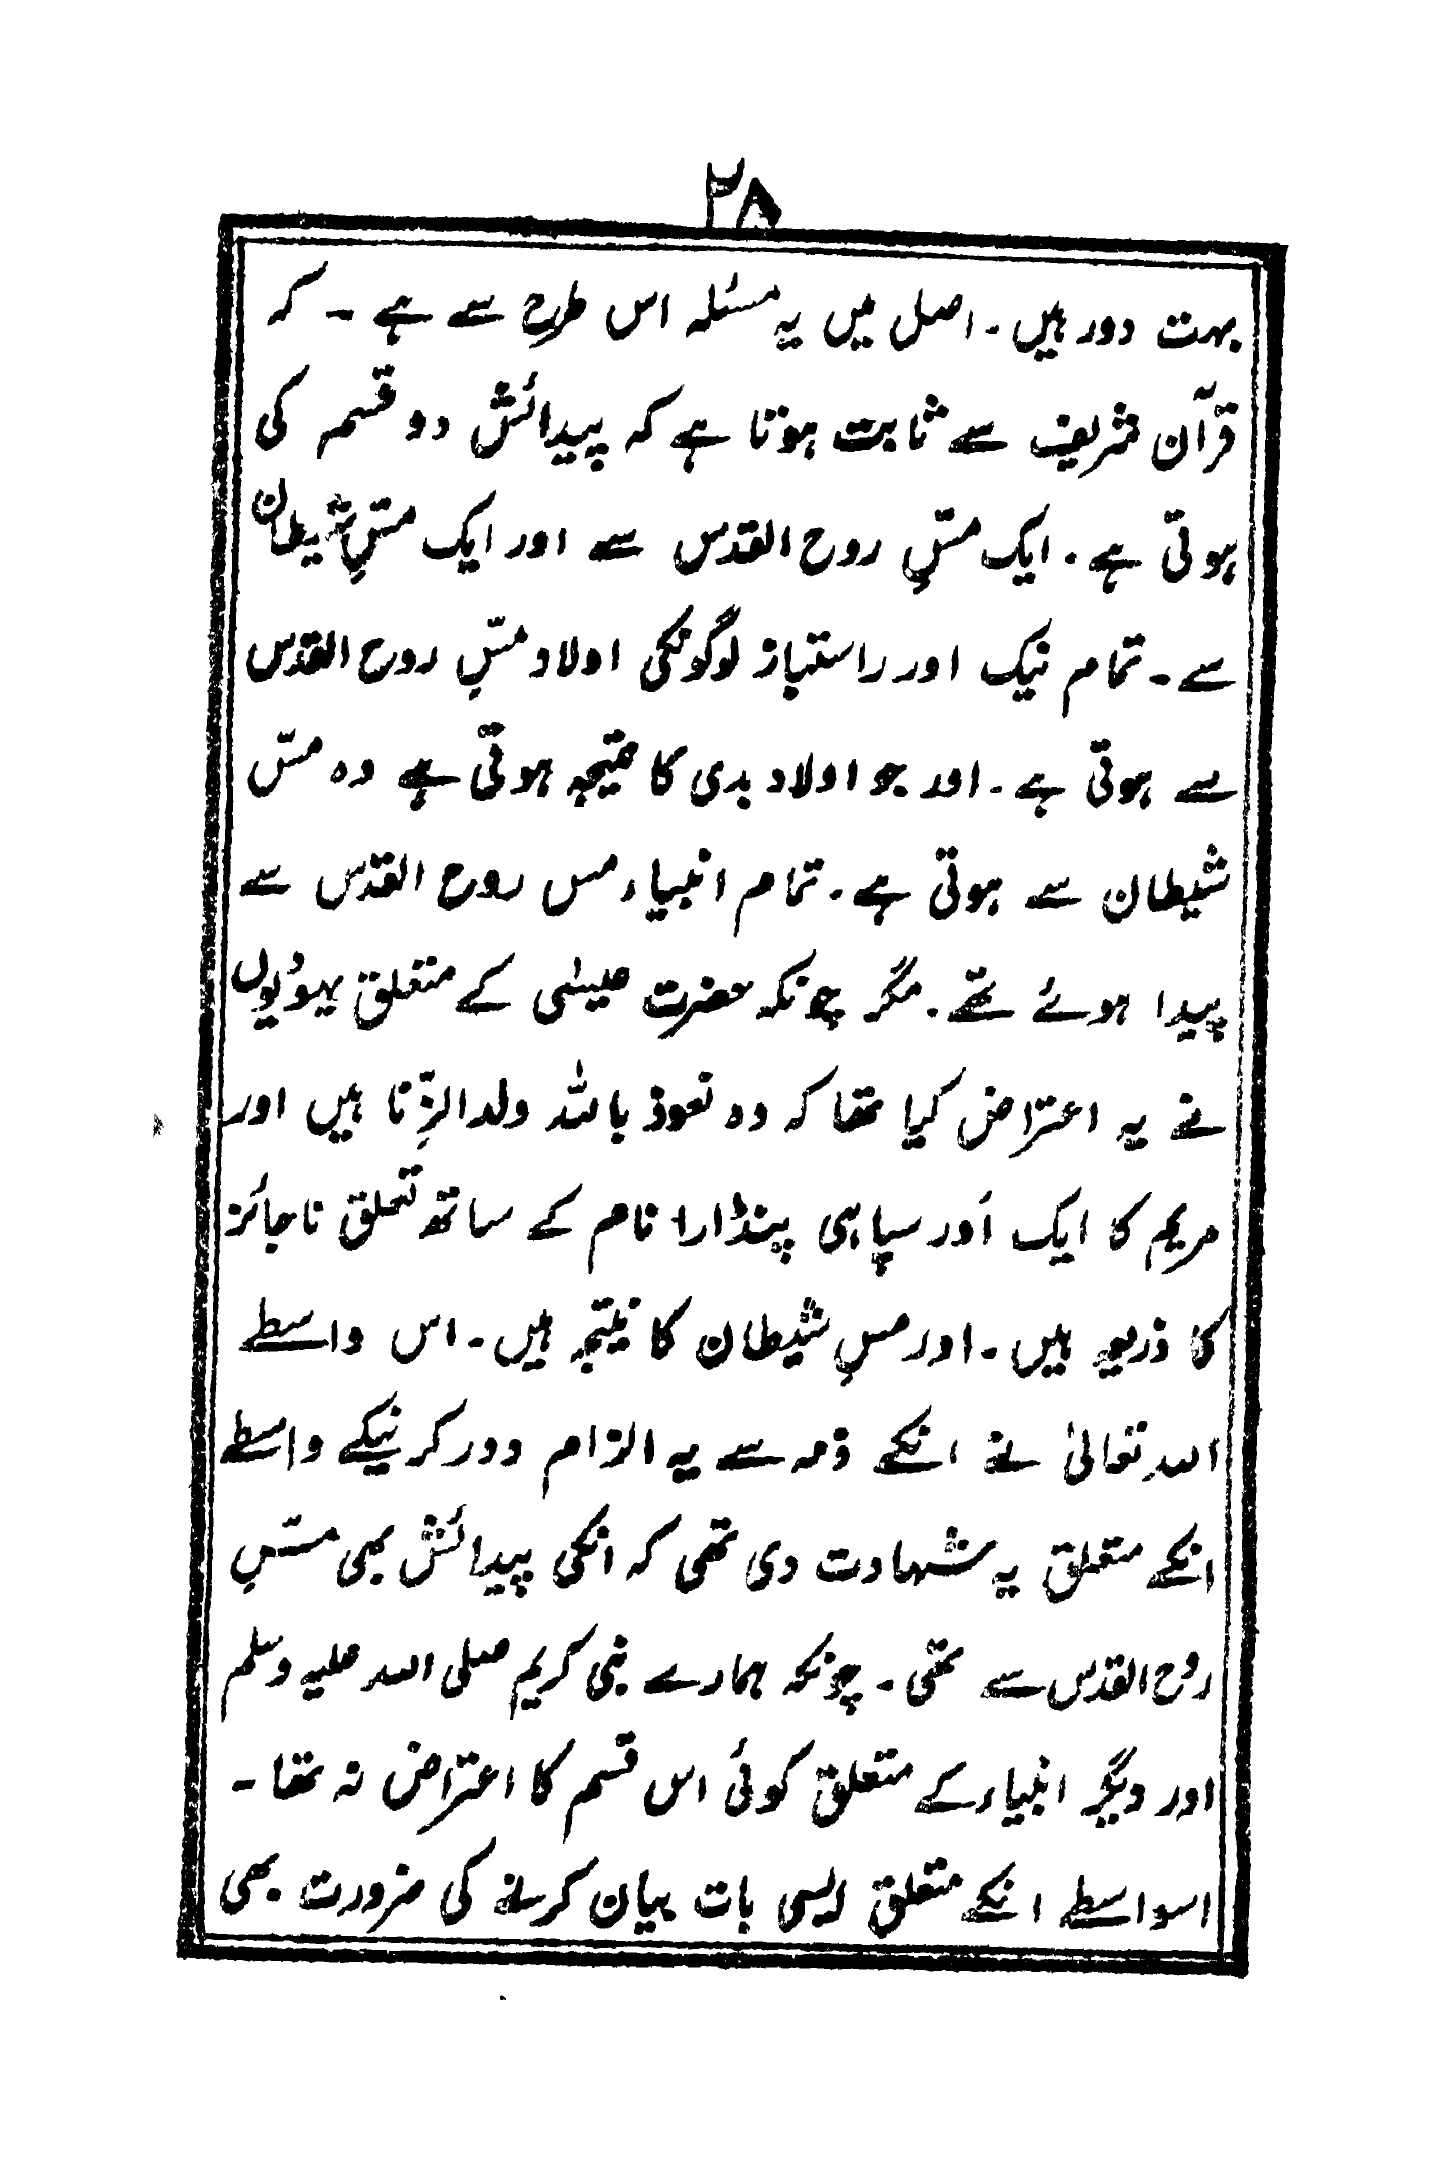 ۲۸
بہت دور ہیں۔ اصل میں یہ مسئلہ اس طرح سے ہے ۔ کہ
قرآن شریف سے ثابت ہوتا ہے کہ پیدائش دو قسم کی
ہوتی ہے۔ ایک مسِّ روح القدس سے اور ایک مسِّ شیطان
سے۔ تمام نیک اور راستباز لوگونکی اولاد مسِّ روح القدس
سے ہوتی ہے۔ اور جو اولاد بدی کا نتیجہ ہوتی ہے وہ مسّ
شیطان سے ہوتی ہے۔ تمام انبیاء مس روح القدس سے
پیدا ہوئے تھے۔ مگر چونکہ حضرت عیسٰی کے متعلق یہودیوں
نے یہ اعتراض کیا تھا کہ وہ نعوذ باللہ ولد الزِّنا ہیں اور
مریم کا ایک اَور سپاہی پنڈارا نام کے ساتھ تعلق ناجائز
کا ذریعہ ہیں۔ اور مسِ شیطان کا نیتجہ ہیں۔ اس واسطے
اللہ تعالیٰ نے انکے ذمہ سے یہ الزام دور کرنیکے واسطے
انکے متعلق یہ شہادت دی تھی کہ انکی پیدائش بھی مسّسِ
روح القدس سے تھی ۔ چونکہ ہمارے نبی کریم صلی اللہ علیہ وسلم
اور دیگر انبیاء کے متعلق کوئی اس قسم کا اعتراض نہ تھا ۔
اسواسطے انکے متعلق ایسی بات بیان کرنے کی ضرورت بھی